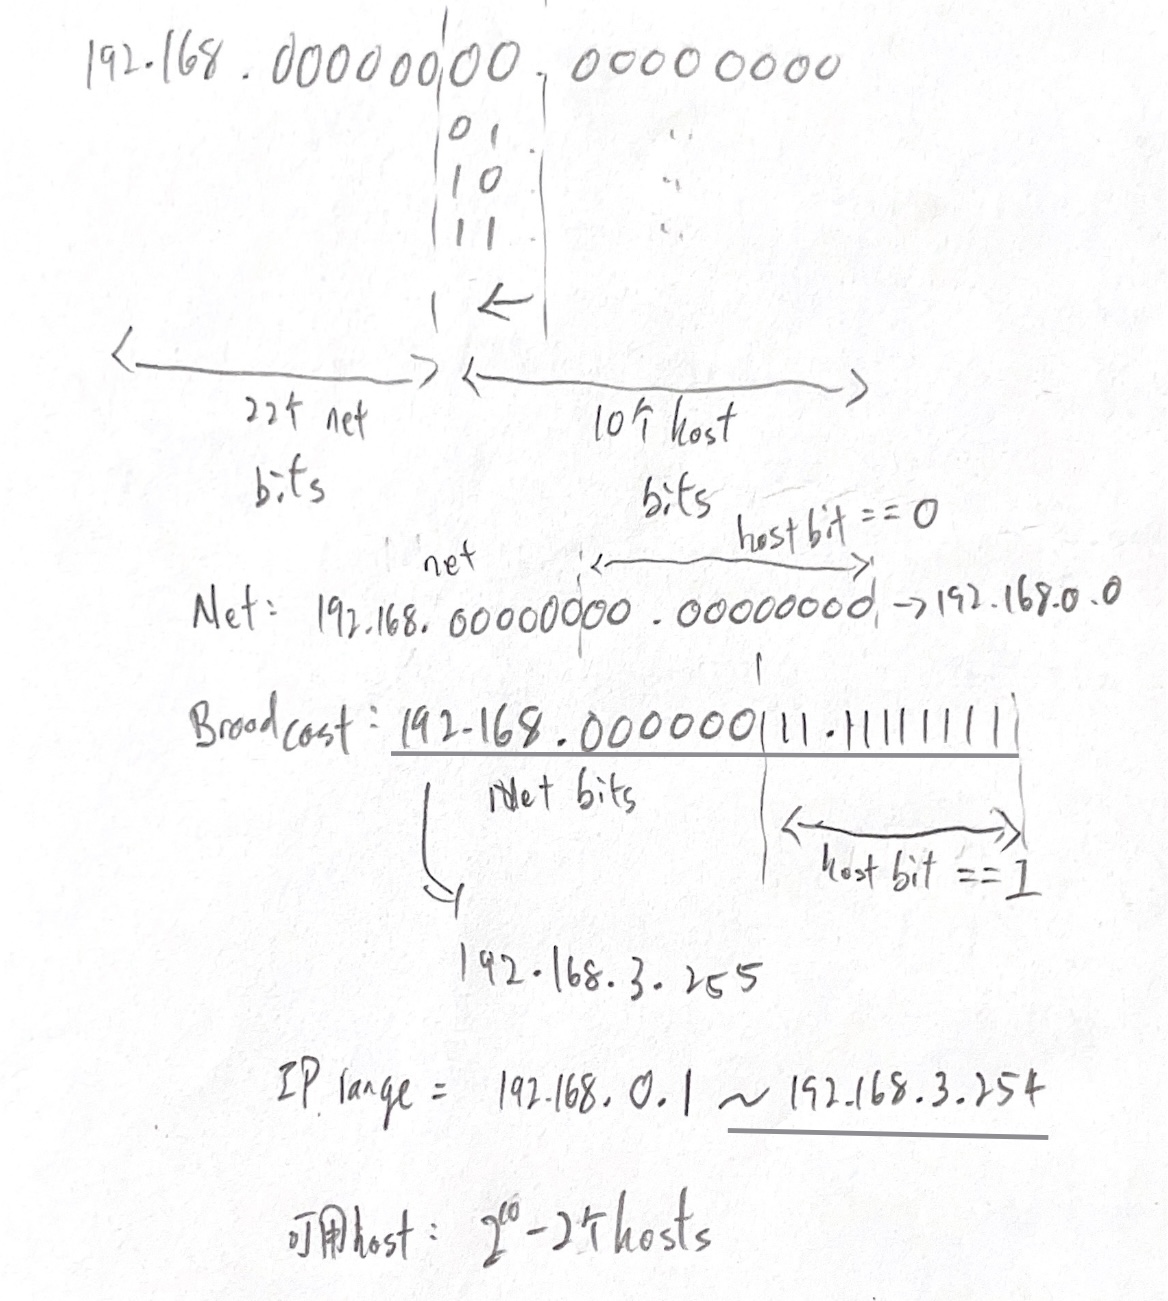 192.168.00000000.00000000
01 . "
10 "
11 . "
1 ←
22个 net
bits
10个 host
bits
host bit == 0
net
Net: 192.168.00000000.00000000 → 192.168.0.0
Broadcast: 192.168.000000|11.11111111
Net bits
host bit == 1
192.168.3.255
IP range = 192.168.0.1 ~ 192.168.3.254
可用host: 2^10-2个hosts